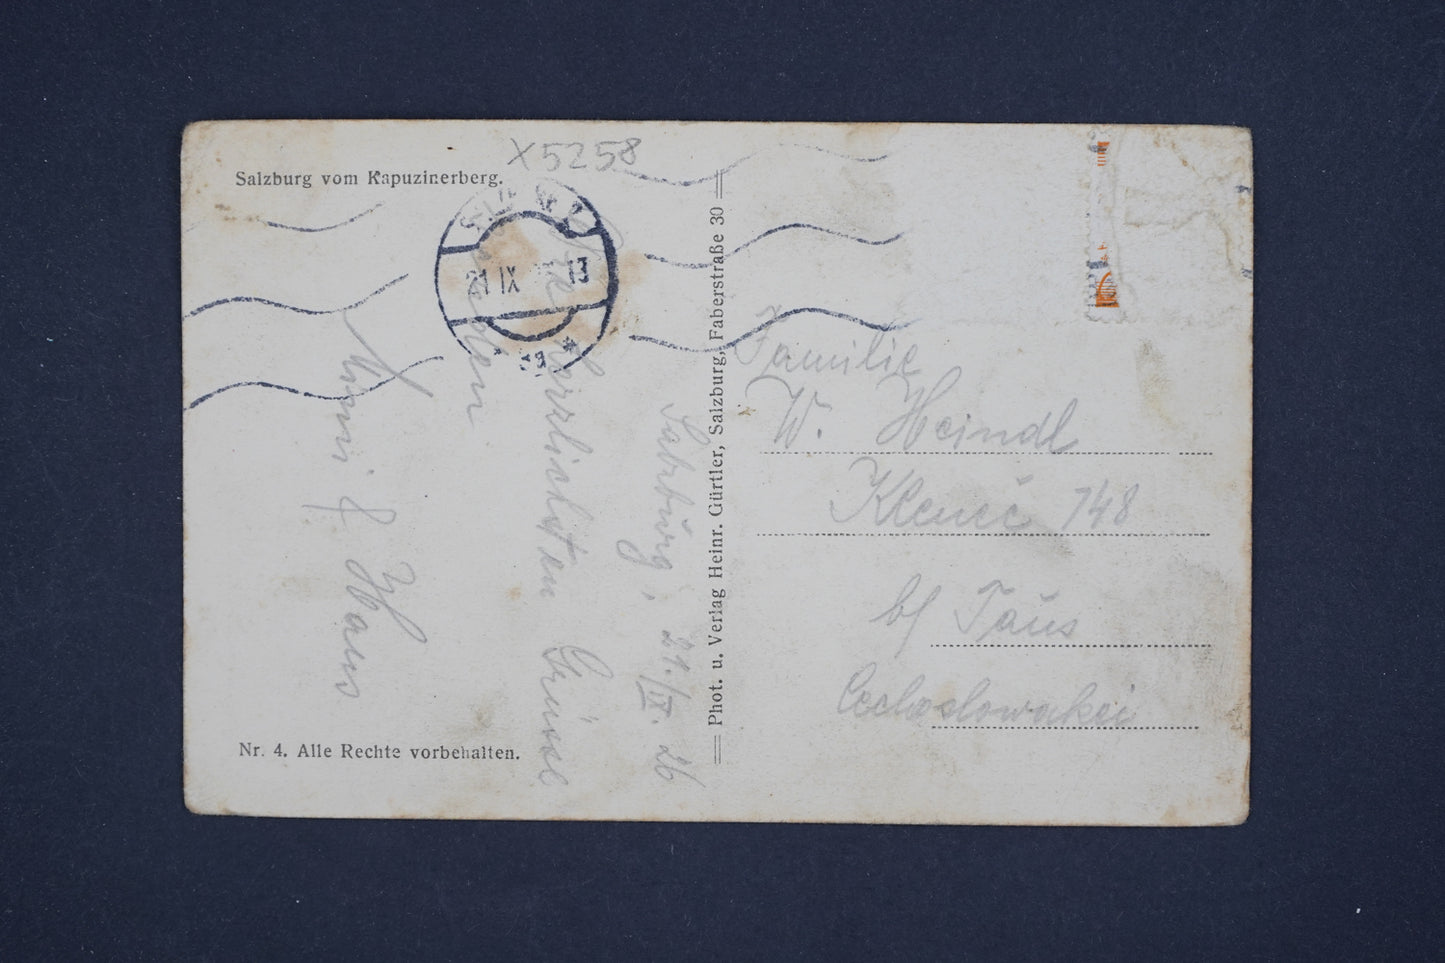 Salzburg vom Kapuzinerberg.
X5258
21 IX 13
Salzburg, 21./IX. 26
Die herzlichsten Grüsse
senden
Hans
Nr. 4. Alle Rechte vorbehalten.
Phot. u. Verlag Heinr. Gürtler, Salzburg, Faberstraße 30
Familie
W. Heindl
Klenec 148
b/ Taus
Cechoslowakei